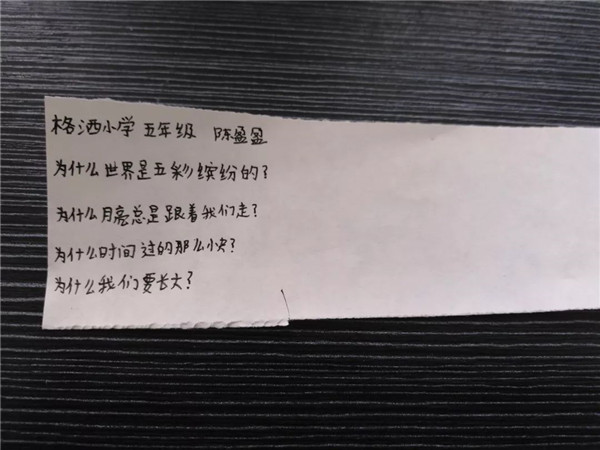 格洒小学 五年级 陈盈盈
为什么世界是五彩缤纷的?
为什么月亮总是跟着我们走?
为什么时间过的那么快?
为什么我们要长大?